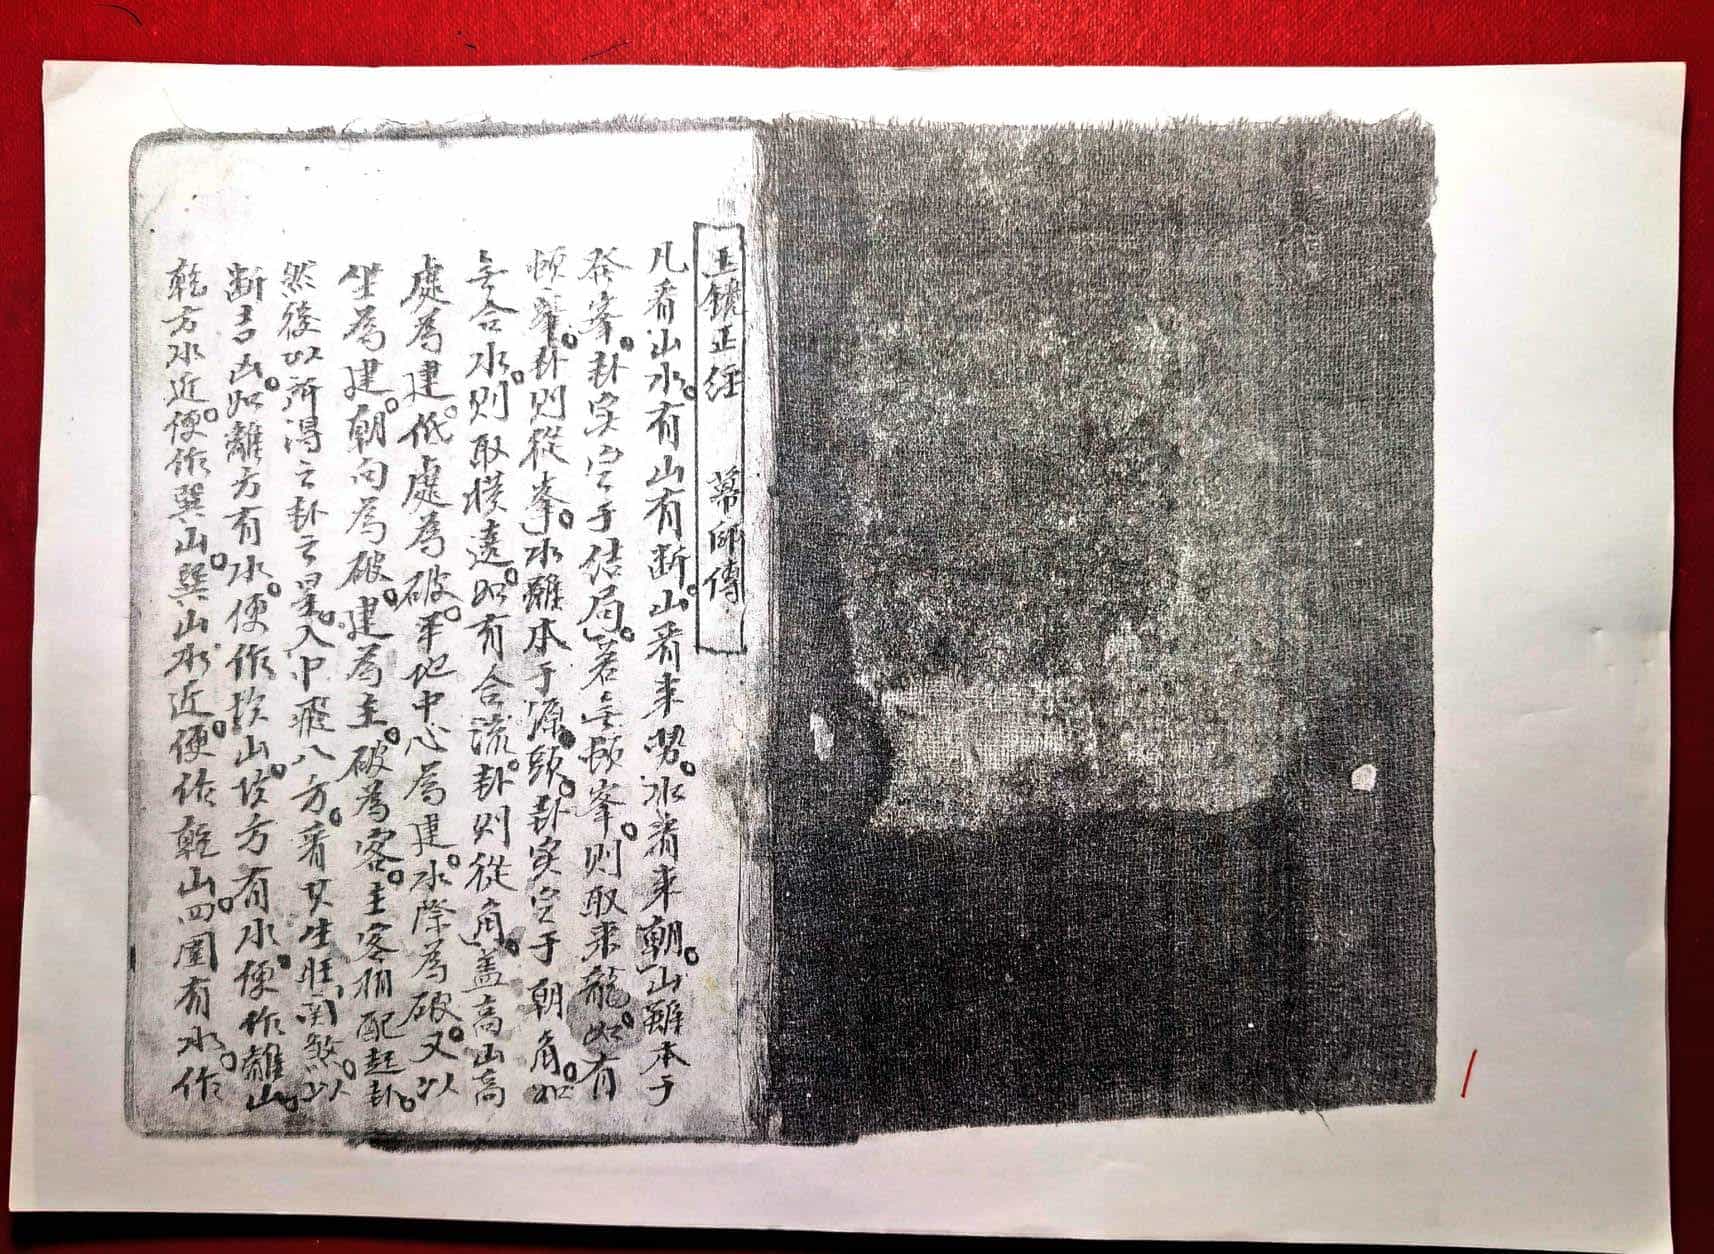 玉鏡正經　幕師傳
凡看山水。有山有断。山看来势。水看来朝。山雖本于
發峯。卦实定于结局。若無頓峯。则取来龍。如有
頓峯。卦则從峯。水雖本于源頭。卦实定于朝角。如
無合水。则取横遶。如有合流。卦则從角。盖高山高
處為建。低處為破。平地中心為建。水際為破。又以
坐為建。朝向為破。建為主。破為客。主客相配起卦。
然後以所得之卦之星。入中飛八方。看其生旺関煞。以
断吉凶。如離方有水。便作坎山。坎方有水。便作離山。
乾方水近。便作巽山。巽山水近。便作乾山。四圍有水。作